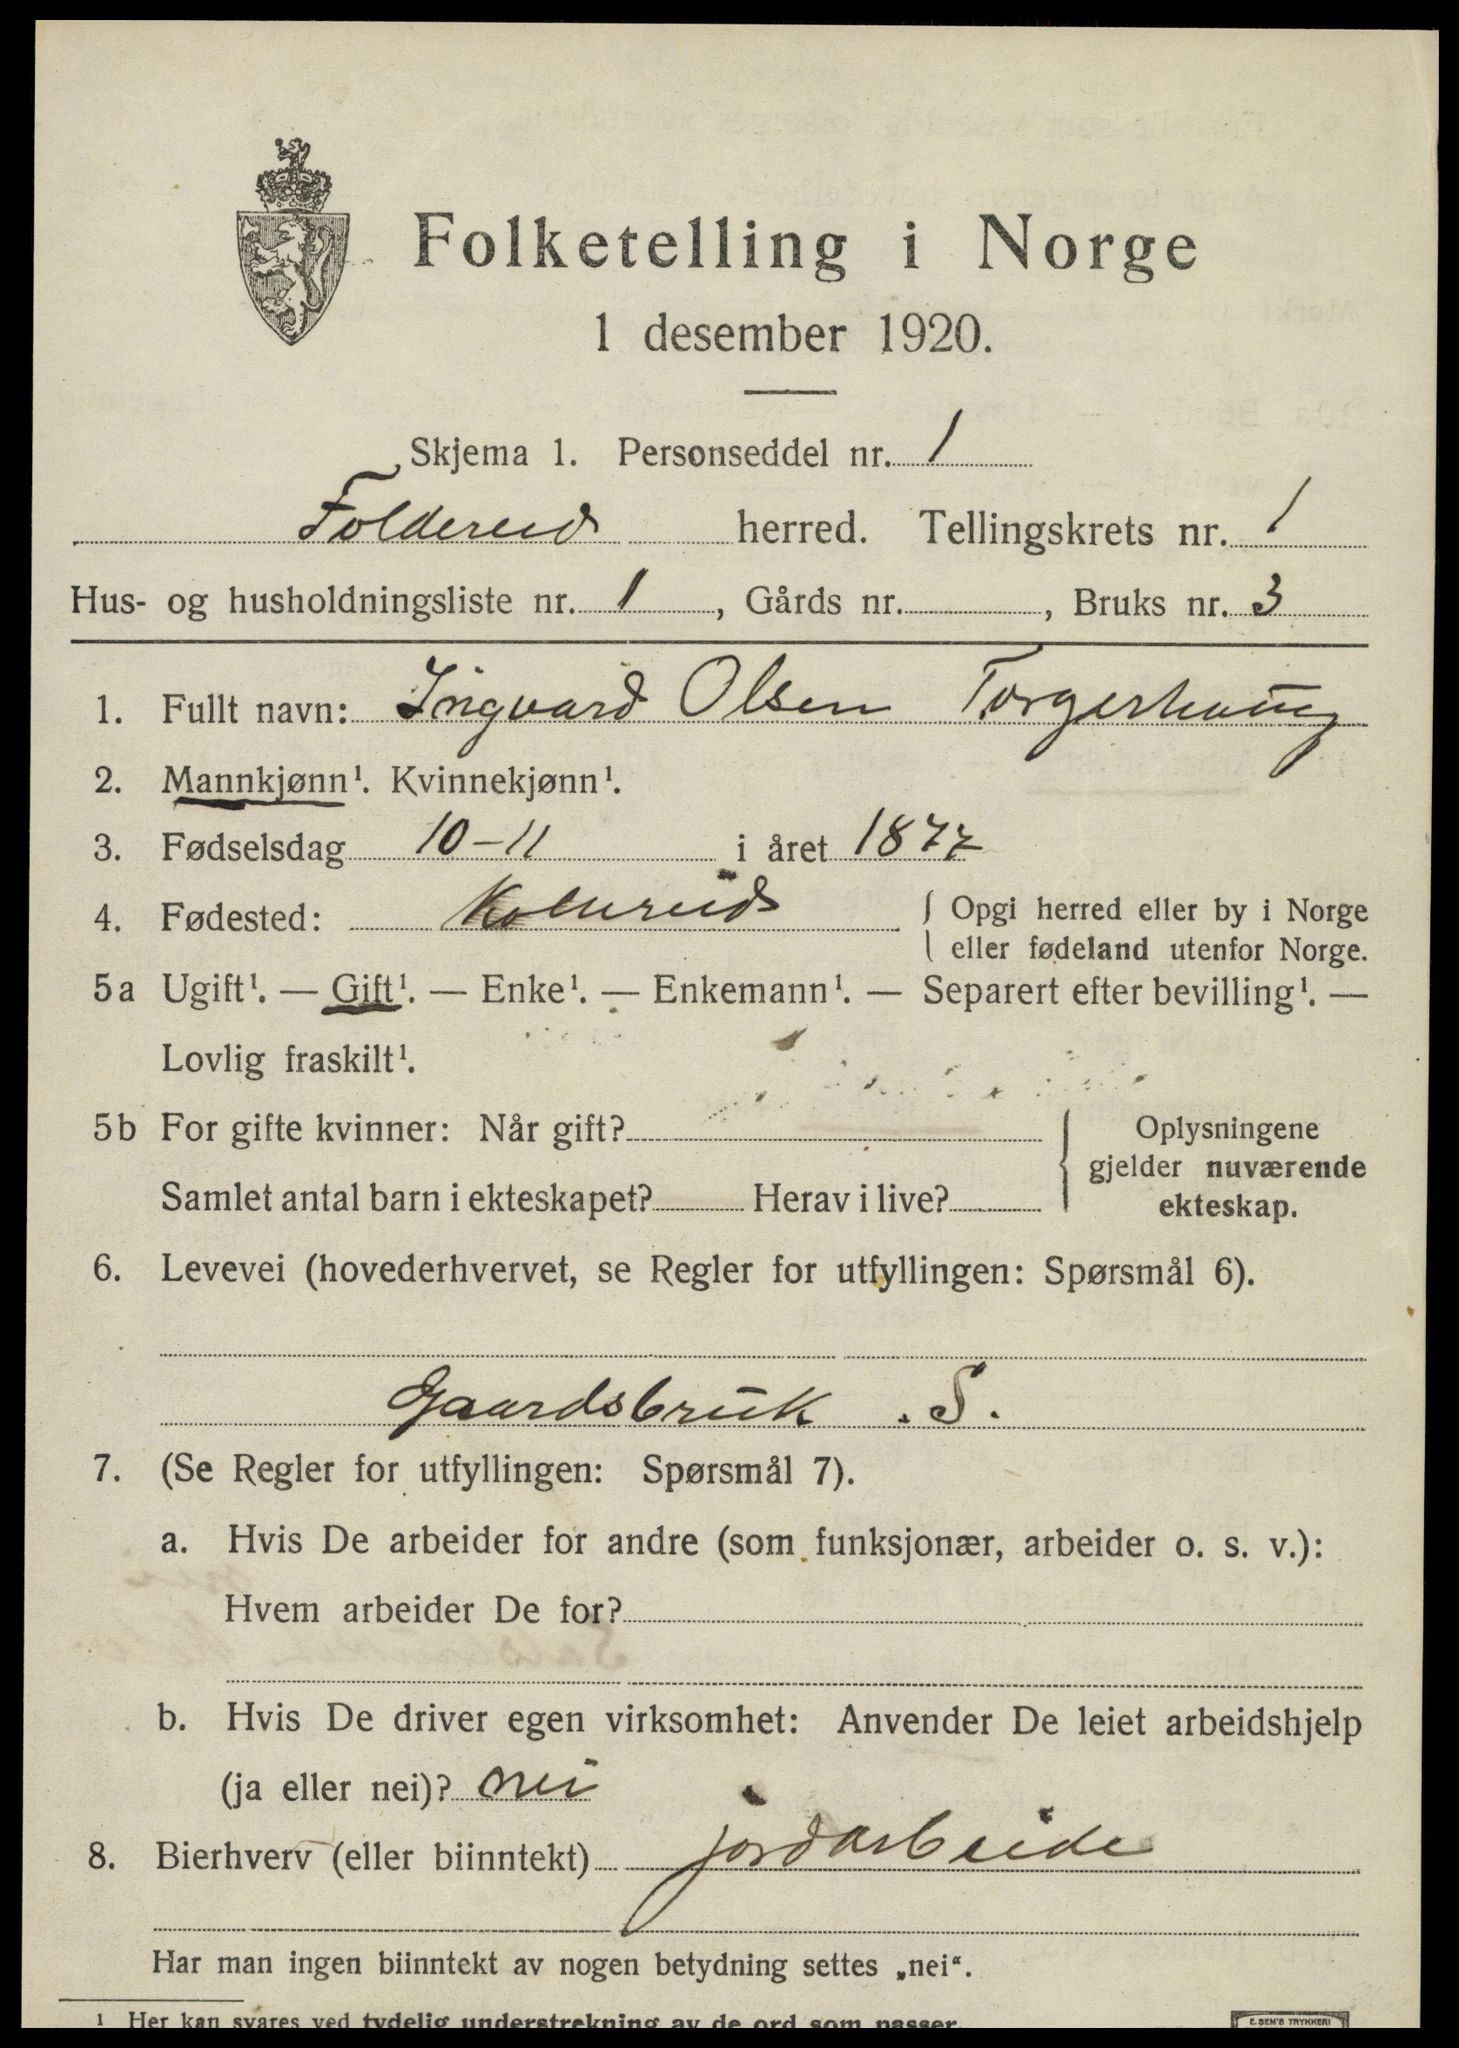 Folketelling i Norge
1 desember 1920.
Skjema 1. Personseddel nr. 1
Foldereid herred. Tellingskrets nr. 1
Hus- og husholdningsliste nr. 1, Gårds nr. , Bruks nr. 3
1. Fullt navn: Ingvard Olsen Torgerhaug
2. Mannkjønn¹. Kvinnekjønn¹.
3. Fødselsdag 10-11 i året 1877
4. Fødested: Kolvereid { Opgi herred eller by i Norge
eller fødeland utenfor Norge.
5a Ugift¹. — Gift¹. — Enke¹. — Enkemann¹. — Separert efter bevilling¹. —
Lovlig fraskilt¹.
5b For gifte kvinner: Når gift? { Oplysningene
gjelder nuværende
Samlet antal barn i ekteskapet? Herav i live?
ekteskap.
6. Levevei (hovederhvervet, se Regler for utfyllingen: Spørsmål 6).
Gaardsbruk . S.
7. (Se Regler for utfyllingen: Spørsmål 7).
a. Hvis De arbeider for andre (som funksjonær, arbeider o. s. v.):
Hvem arbeider De for?
b. Hvis De driver egen virksomhet: Anvender De leiet arbeidshjelp
(ja eller nei)? nei
8. Bierhverv (eller biinntekt) jordarbeide
Har man ingen biinntekt av nogen betydning settes „nei“.
¹ Her kan svares ved tydelig understrekning av de ord som passer.
E. SEM'S TRYKKERI